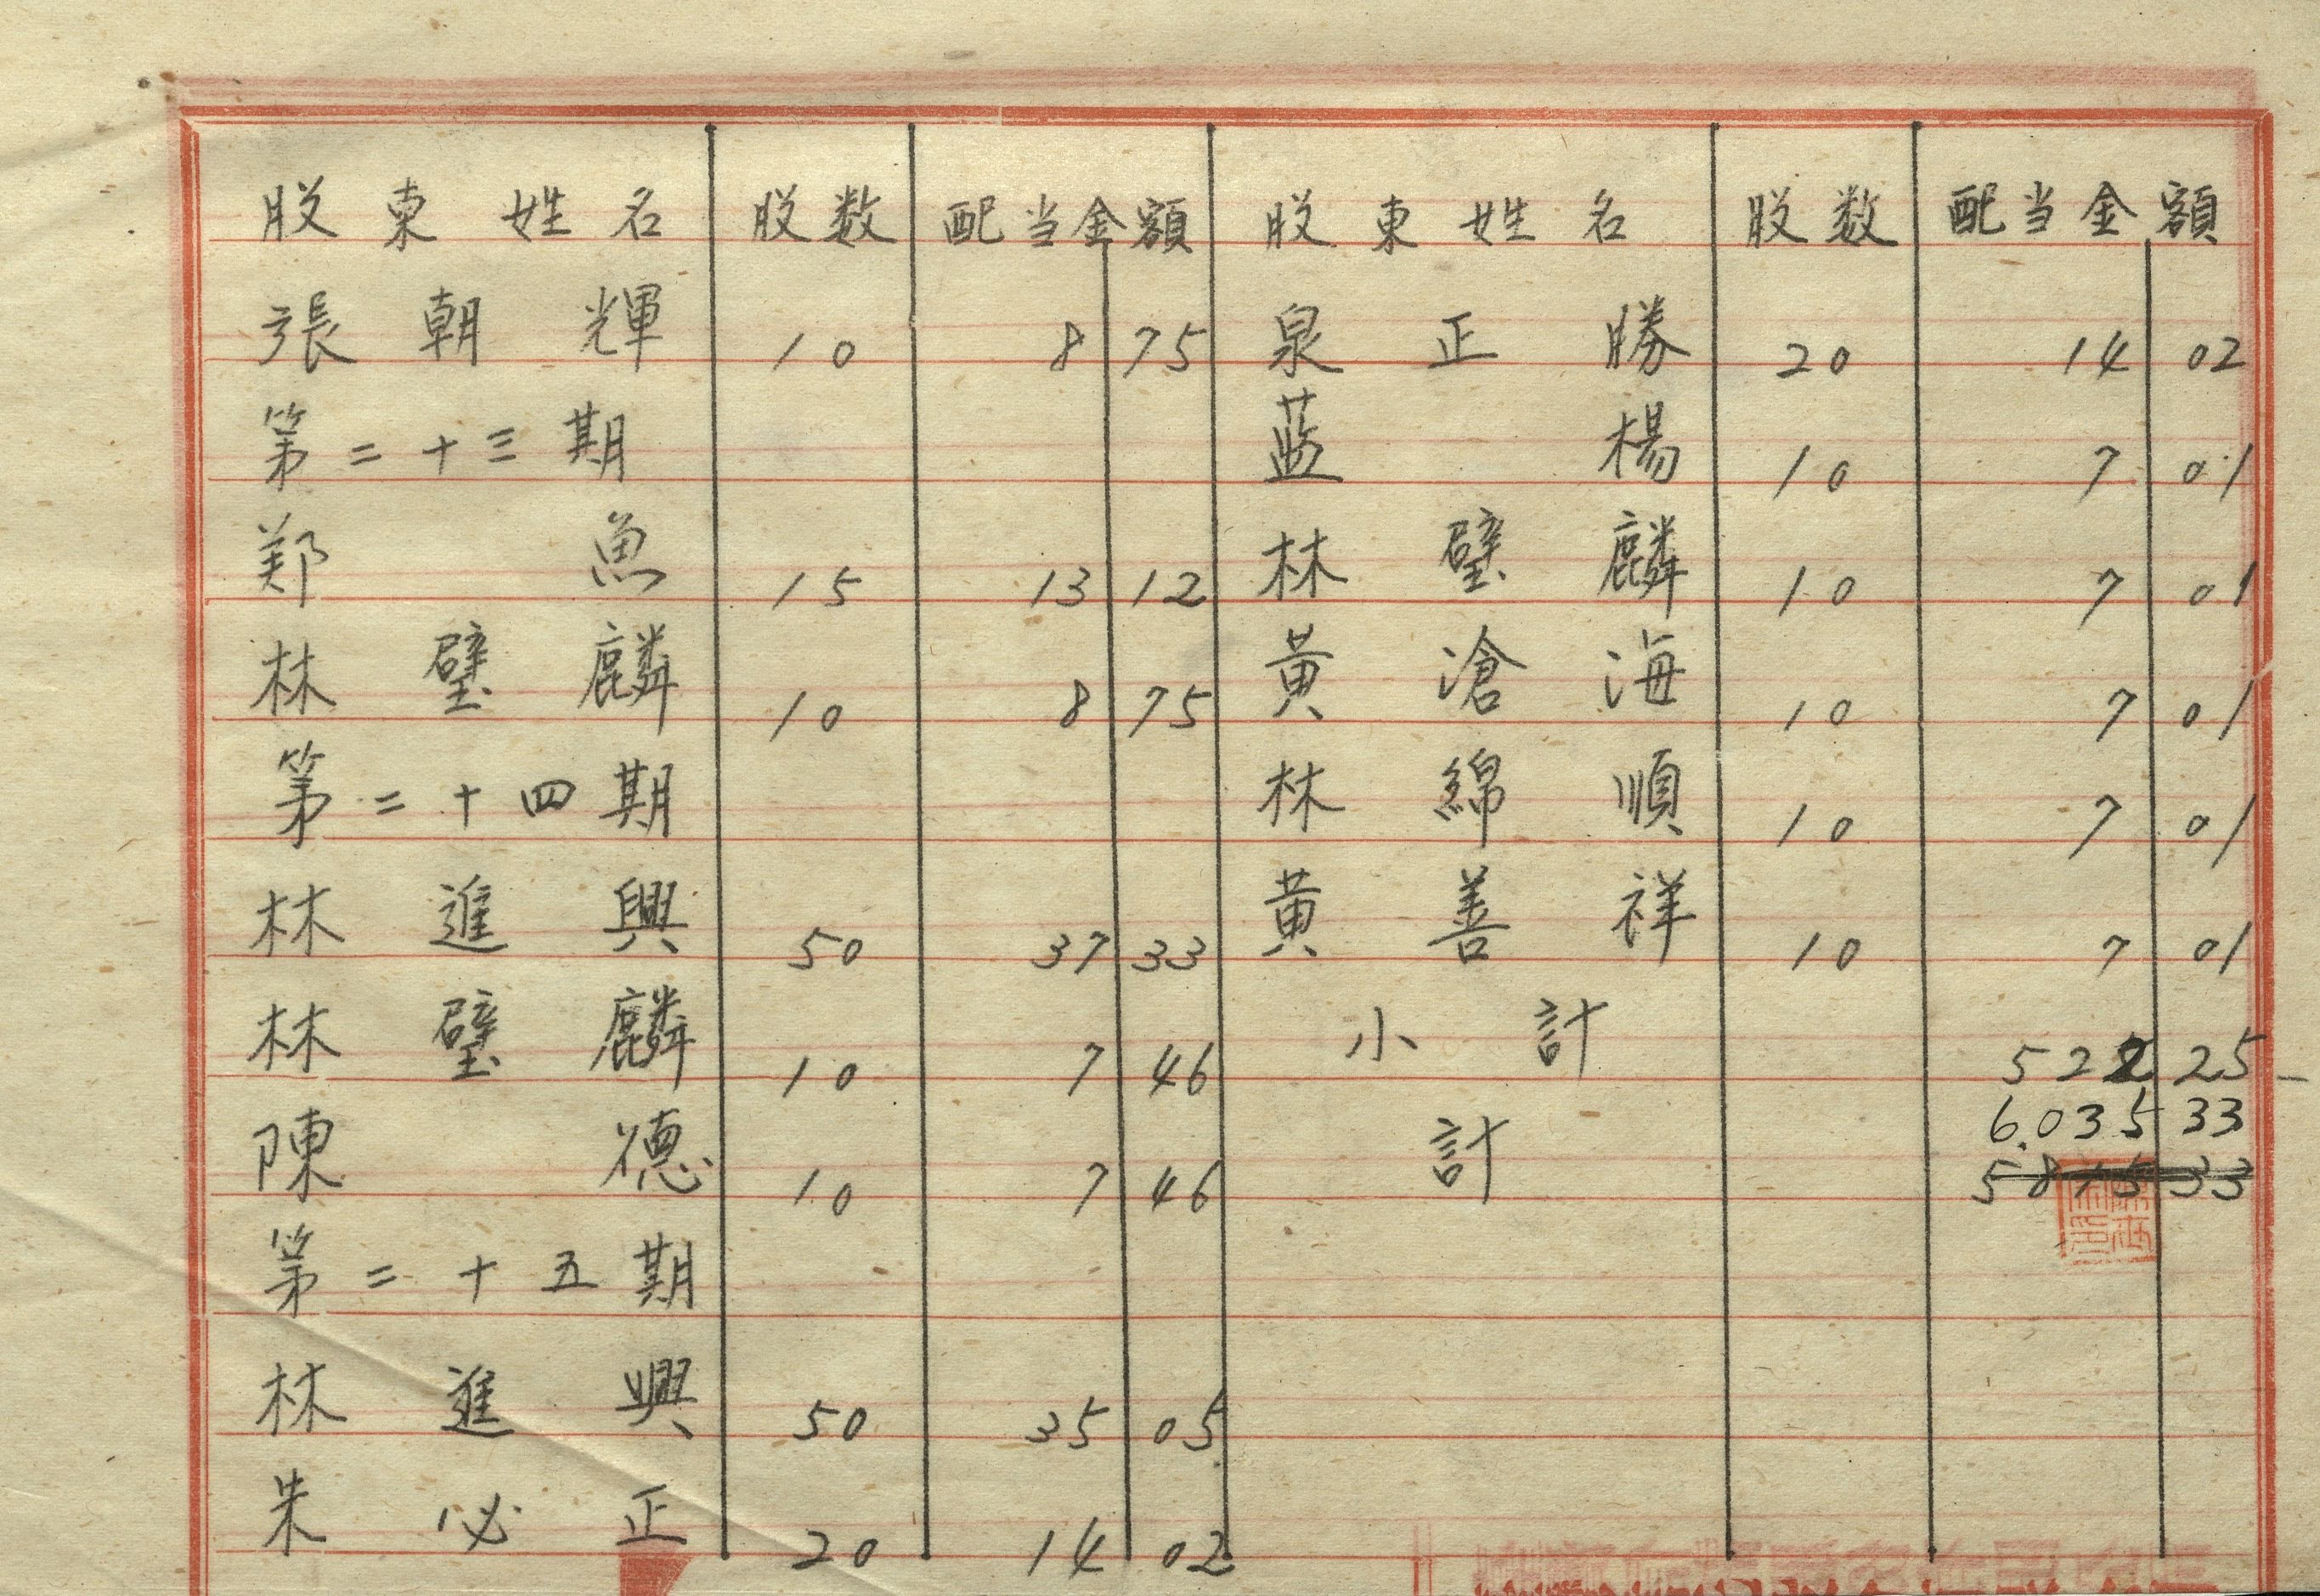 股東姓名 股数 配当金額
張朝輝 10 8 75
第二十三期
郑魚 15 13 12
林璧麟 10 8 75
第二十四期
林進興 50 37 33
林璧麟 10 7 46
陳德 10 7 46
第二十五期
林進興 50 35 05
朱必正 20 14 02
股東姓名 股数 配当金額
泉正勝 20 14 02
蓝楊 10 7 01
林璧麟 10 7 01
黄滄海 10 7 01
林綿順 10 7 01
黄善祥 10 7 01
小計 522 25
6.035 33
計 5815 33